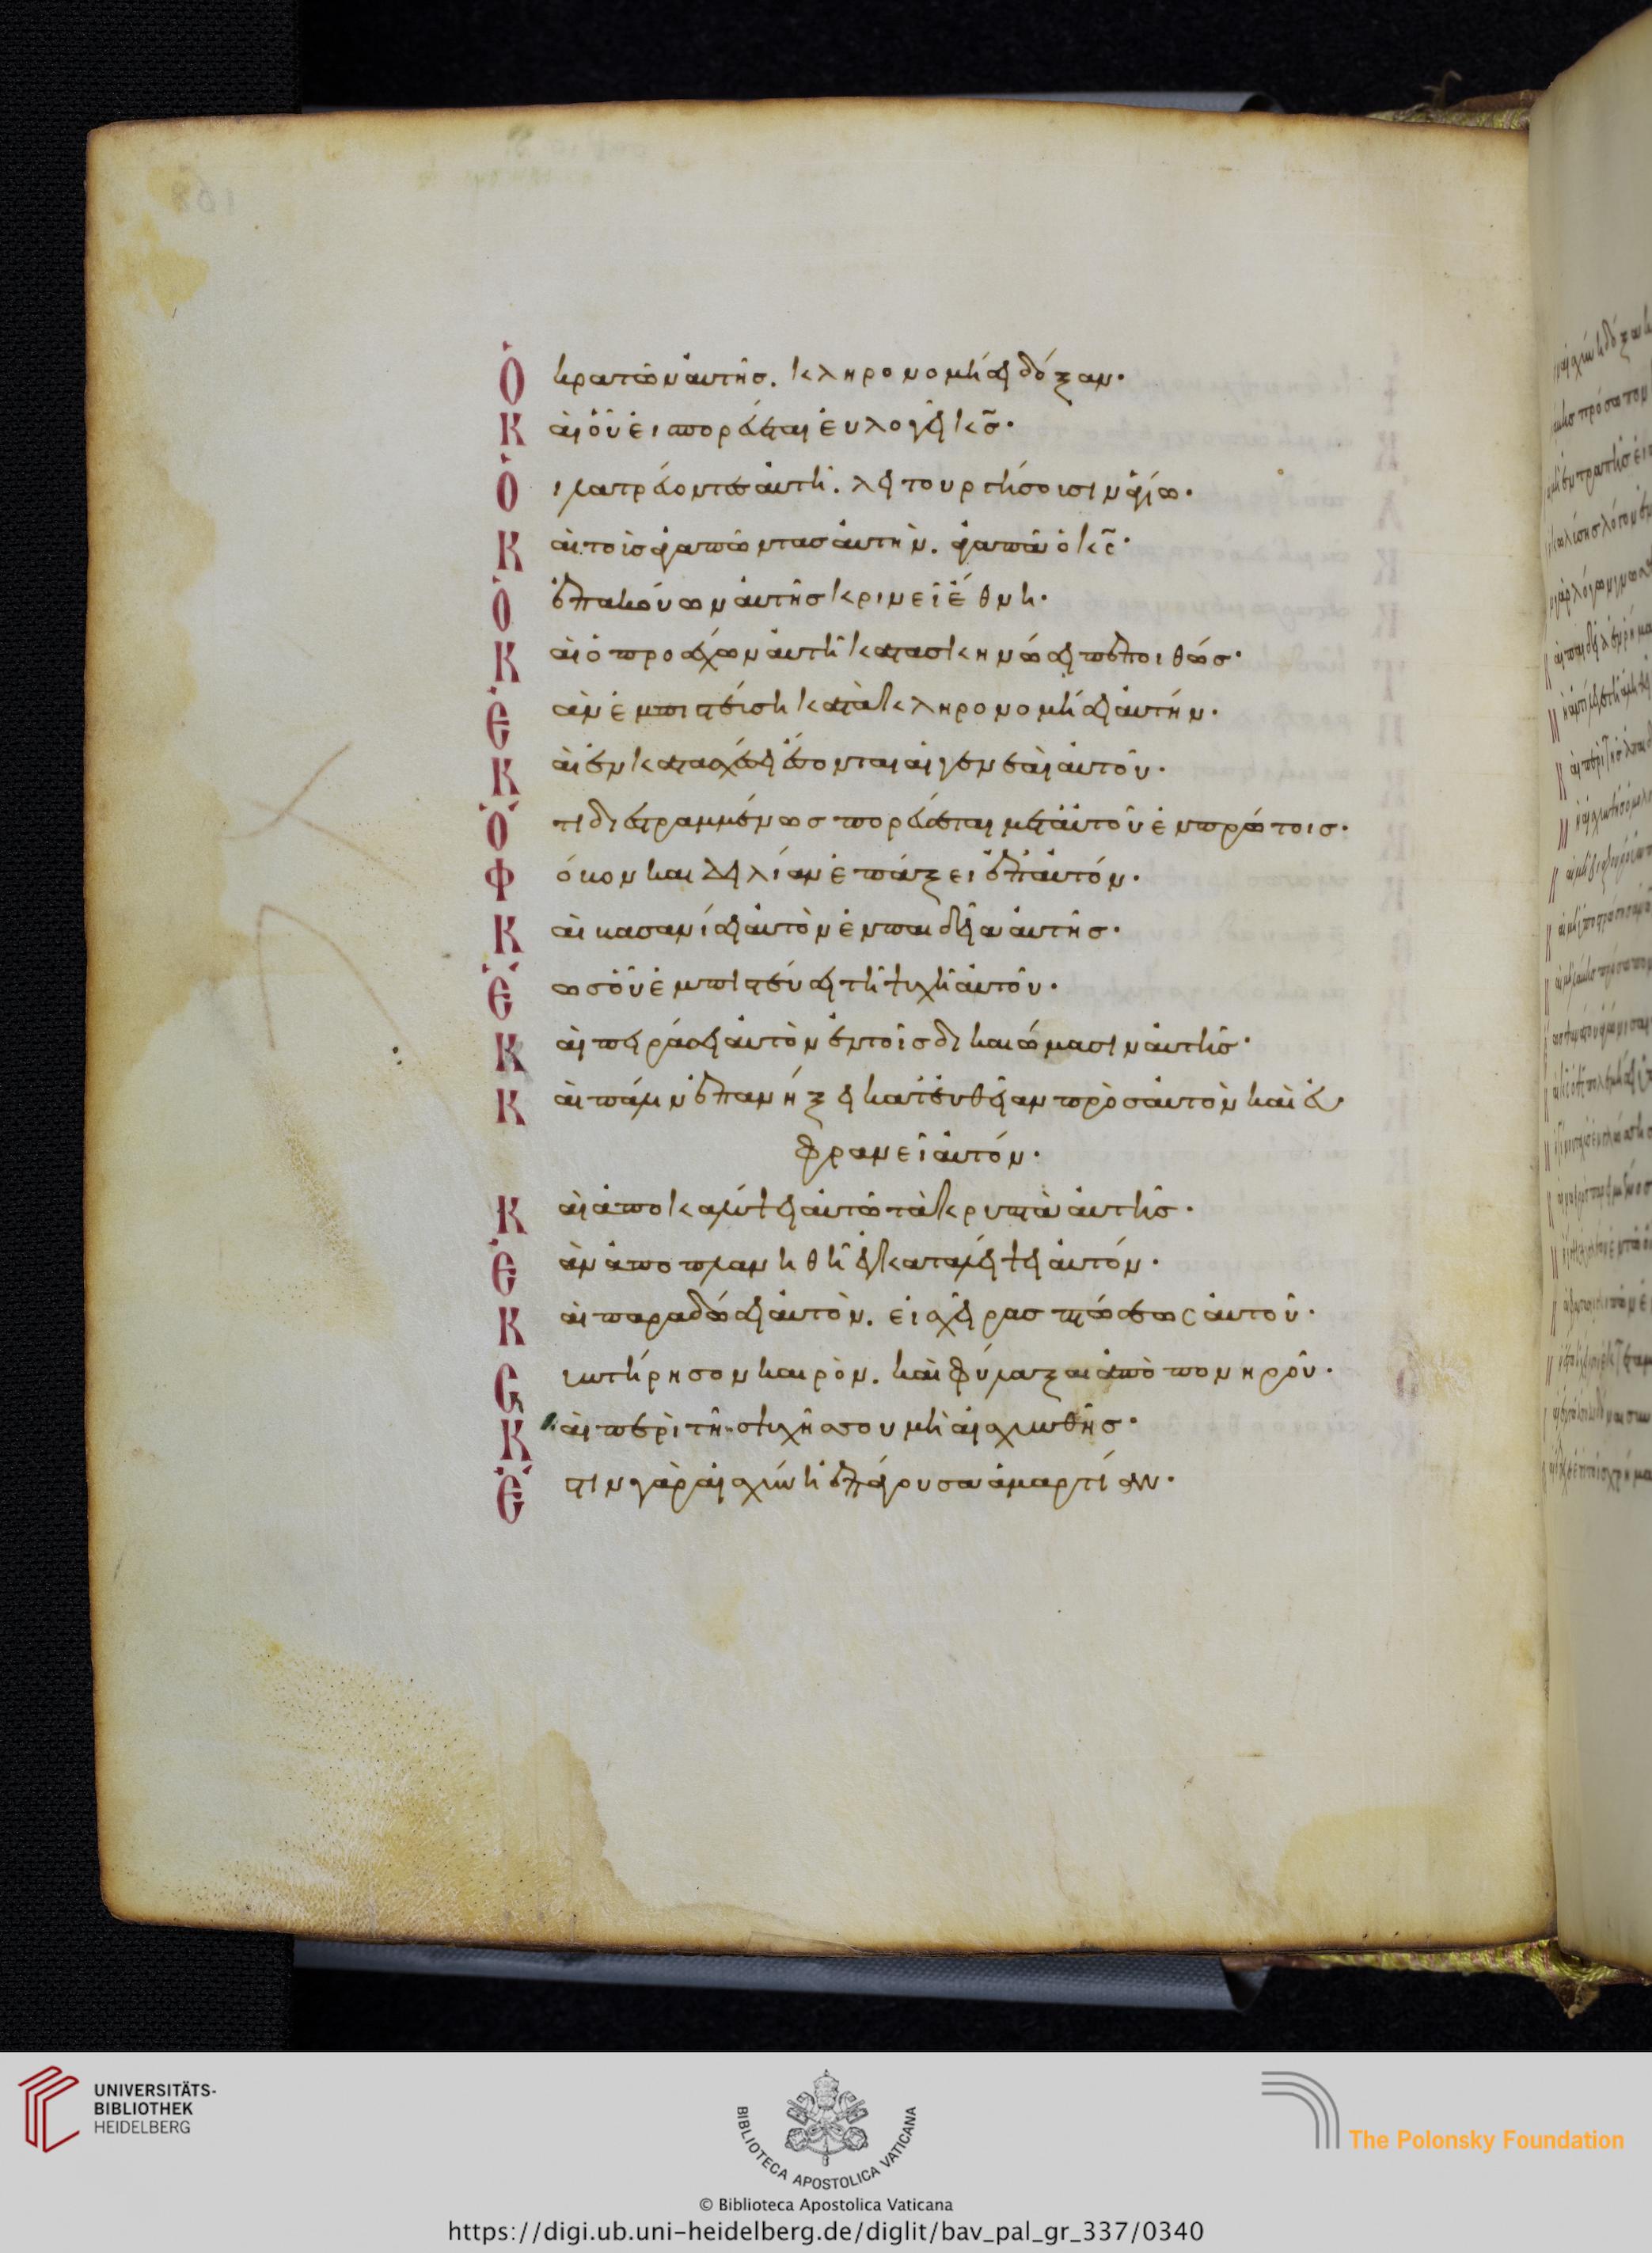 Ὁ κρατῶν αὐτῆς. κληρονομήσει δόξαν·
Καὶ οὗ εἰσπορεύεται εὐλογεῖ κ̅ς·
Οἱ λατρεύοντες αὐτῆ. λειτουργήσουσιν ἁγίω·
Καὶ τοῖς ἀγαπῶντας αὐτὴν. ἀγαπᾶ ὁ κ̅ς·
Ὁ ὑπακούων αὐτῆς κρινεῖ ἔθνη·
Καὶ ὁ προσέχων αὐτῆ κατασκηνώσει πεποιθώς·
Ἐὰν ἐμπιστεύση κατακληρονομήσει αὐτήν·
Καὶ ἐν κατασχέσει ἔσονται αἱ γενεαὶ αὐτοῦ·
Ὅτι διεστραμμένως πορεύεται μετ αὐτοῦ ἐν πρώτοις·
Φόβον και δειλίαν ἐπάξει ἐπ αὐτόν·
Καὶ βασανίσει αὐτὸν ἐν παιδεία αὐτῆς·
Ἕως οὗ ἐμπιστεύσει τῆ ψυχῆ αὐτοῦ·
Καὶ πειράσει αὐτὸν ἐν τοῖς δικαιώμασιν αὐτῆς·
Καὶ πάλιν ἐπανήξει κατ εὐθεῖαν πρὸς αὐτὸν καὶ εὐ
φρανεῖ αὐτόν·
Καὶ ἀποκαλύψει αὐτῶ τὰ κρυπτὰ αὐτῆς·
Ἐὰν ἀποπλανηθῆ ἐγκαταλείψει αὐτόν·
Καὶ παραδώσει αὐτὸν. εἰς χεῖρας πτώσεως αὐτοῦ·
Συντήρησον καιρὸν. καὶ φύλαξαι ἀπὸ πονηροῦ·
Καὶ περὶ τῆς ψυχῆς σου μὴ αἰσχυνθῆς·
Ἔστιν γὰρ αἰσχύνη ἐπάγουσα ἁμαρτίαν·
UNIVERSITÄTS-
BIBLIOTHEK
HEIDELBERG
BIBLIOTECA APOSTOLICA VATICANA
The Polonsky Foundation
© Biblioteca Apostolica Vaticana
https://digi.ub.uni-heidelberg.de/diglit/bav_pal_gr_337/0340